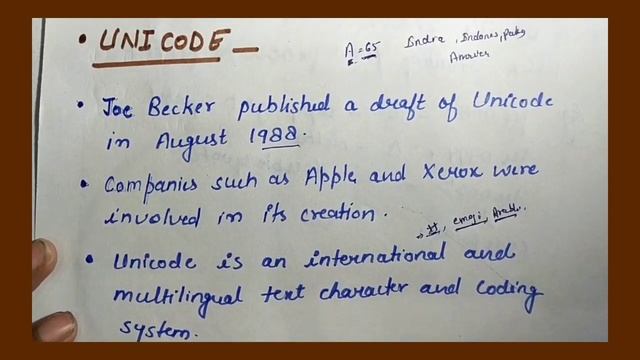 • UNICODE –
A = 65
• Joe Becker published a draft of Unicode
in August 1988.
• Companies such as Apple and Xerox were
involved in its creation.
emoji,
• Unicode is an international and
multilingual text character and coding
system.